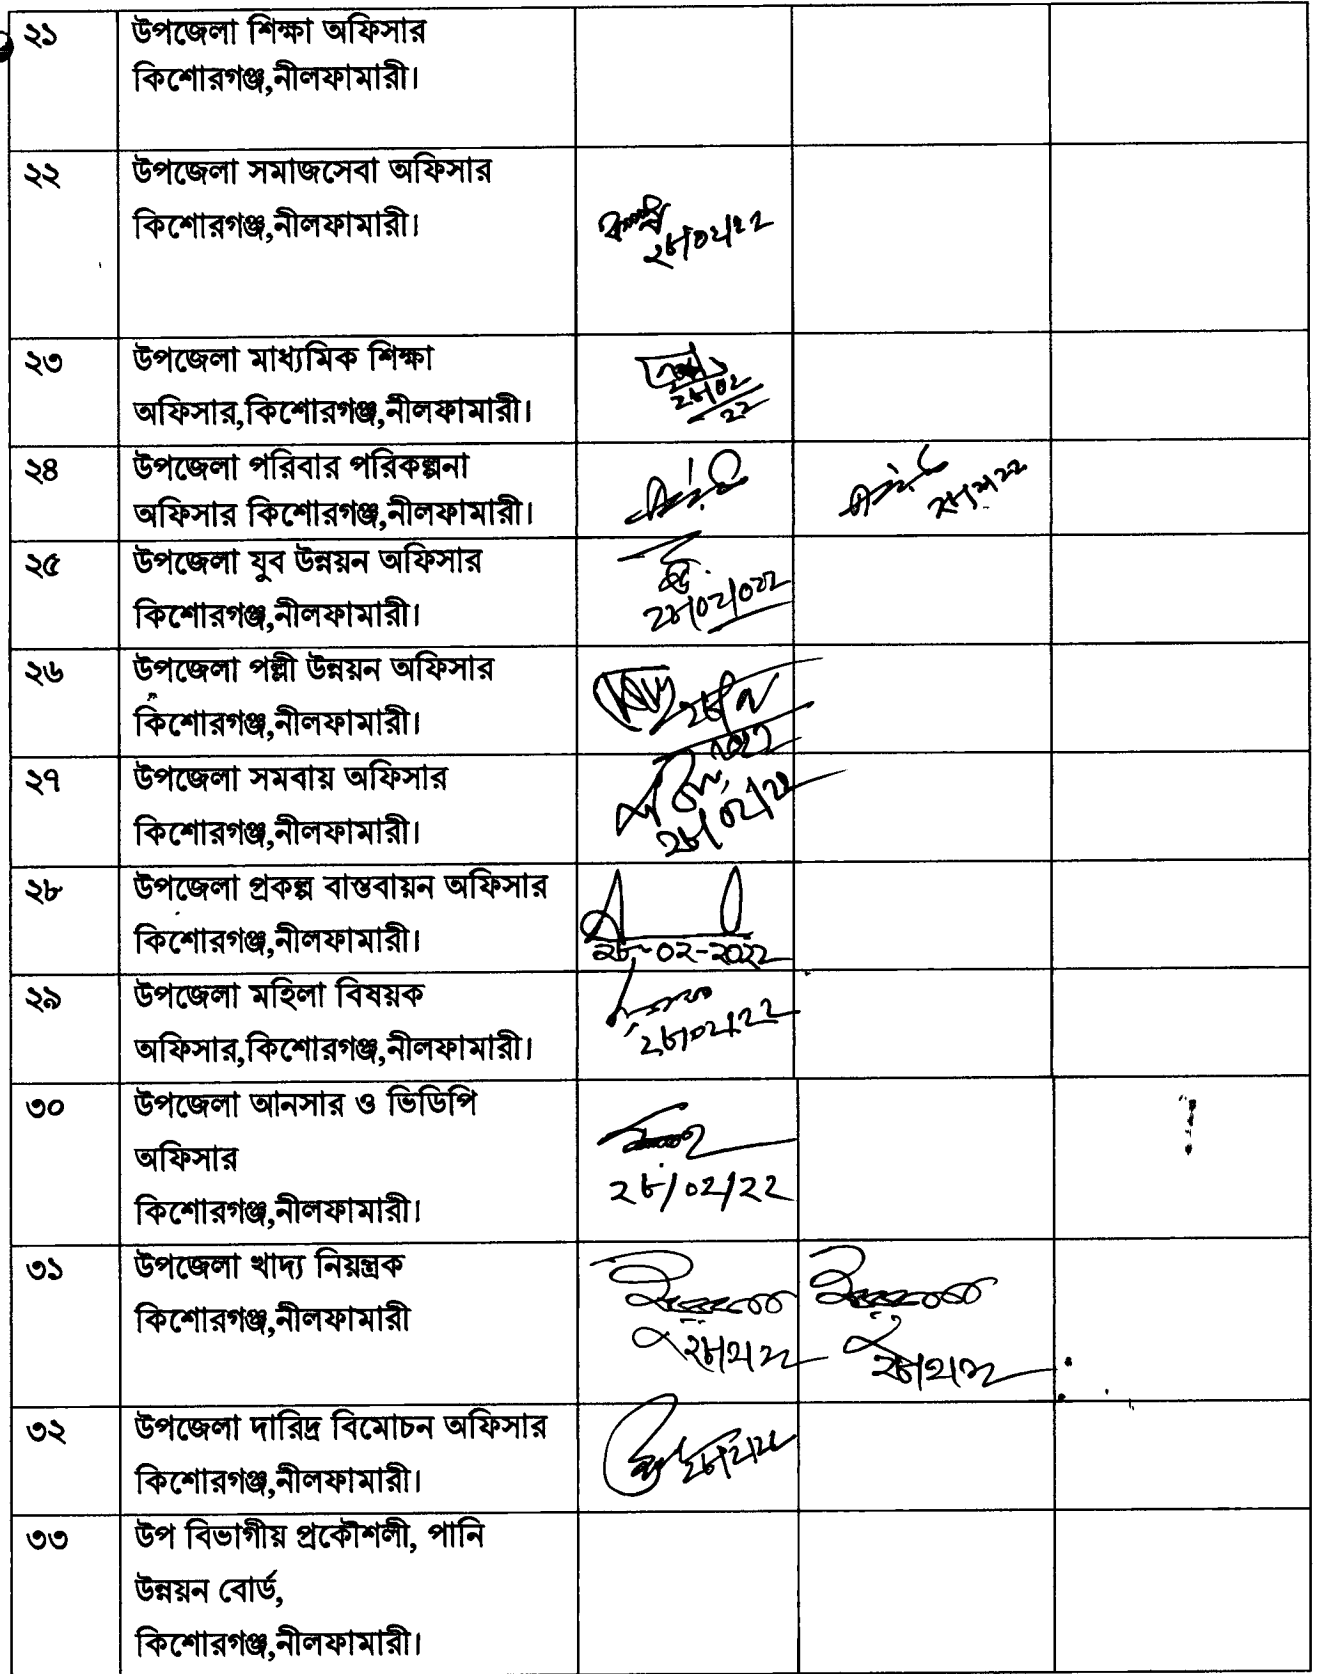 ২১
উপজেলা শিক্ষা অফিসার
কিশোরগঞ্জ,নীলফামারী।
২২
উপজেলা সমাজসেবা অফিসার
কিশোরগঞ্জ,নীলফামারী।
২৮/০২/২২
২৩
উপজেলা মাধ্যমিক শিক্ষা
অফিসার,কিশোরগঞ্জ,নীলফামারী।
২৮/০২
২২
২৪
উপজেলা পরিবার পরিকল্পনা
অফিসার কিশোরগঞ্জ,নীলফামারী।
২৫
উপজেলা যুব উন্নয়ন অফিসার
কিশোরগঞ্জ,নীলফামারী।
২৬
উপজেলা পল্লী উন্নয়ন অফিসার
কিশোরগঞ্জ,নীলফামারী।
২৭
উপজেলা সমবায় অফিসার
কিশোরগঞ্জ,নীলফামারী।
২৮/০২/২২
২৮
উপজেলা প্রকল্প বাস্তবায়ন অফিসার
কিশোরগঞ্জ,নীলফামারী।
২৮-০২-২০২২
২৯
উপজেলা মহিলা বিষয়ক
অফিসার,কিশোরগঞ্জ,নীলফামারী।
২৮/০২/২২
৩০
উপজেলা আনসার ও ভিডিপি
অফিসার
কিশোরগঞ্জ,নীলফামারী।
২৮/০২/২২
৩১
উপজেলা খাদ্য নিয়ন্ত্রক
কিশোরগঞ্জ,নীলফামারী
২৮/২/২২
২৮/২/২২
৩২
উপজেলা দারিদ্র বিমোচন অফিসার
কিশোরগঞ্জ,নীলফামারী।
২৮/২/২২
৩৩
উপ বিভাগীয় প্রকৌশলী, পানি
উন্নয়ন বোর্ড,
কিশোরগঞ্জ,নীলফামারী।